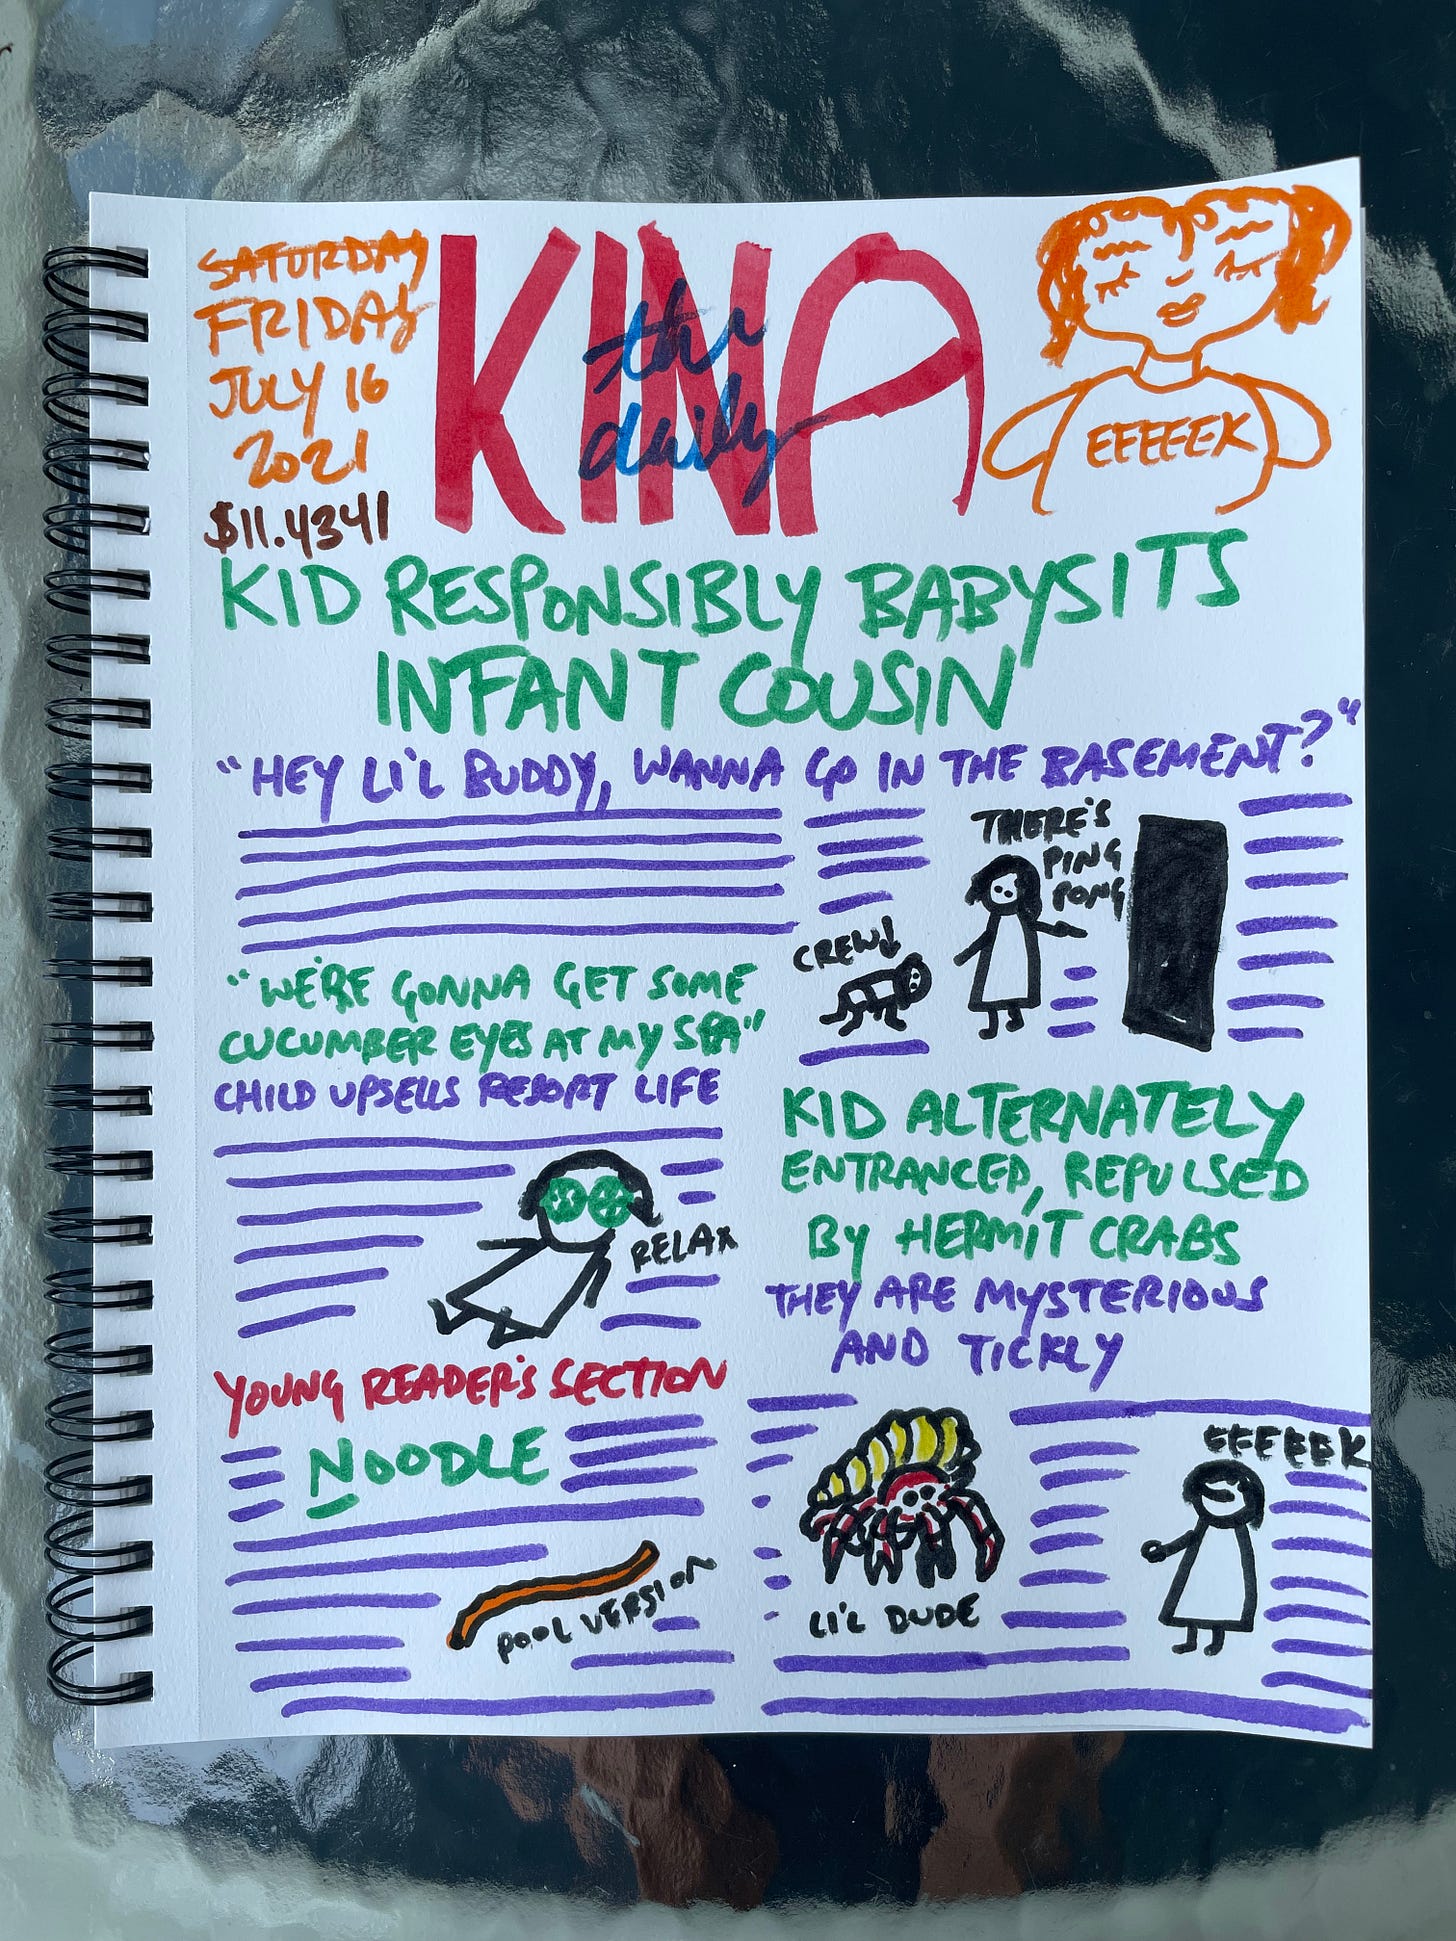 SATURDAY
FRIDAY
JULY 16
2021
$11.4341
KINA
the
daily
EEEEEK
KID RESPONSIBLY BABYSITS
INFANT COUSIN
"HEY LI'L BUDDY, WANNA GO IN THE BASEMENT?"
THERE'S
PING
PONG
CREW↓
"WE'RE GONNA GET SOME
CUCUMBER EYES AT MY SPA"
CHILD UPSELLS RESORT LIFE
RELAX
KID ALTERNATELY
ENTRANCED, REPULSED
BY HERMIT CRABS
THEY ARE MYSTERIOUS
AND TICKLY
YOUNG READER'S SECTION
NOODLE
POOL VERSION
LI'L DUDE
EEEEEEK